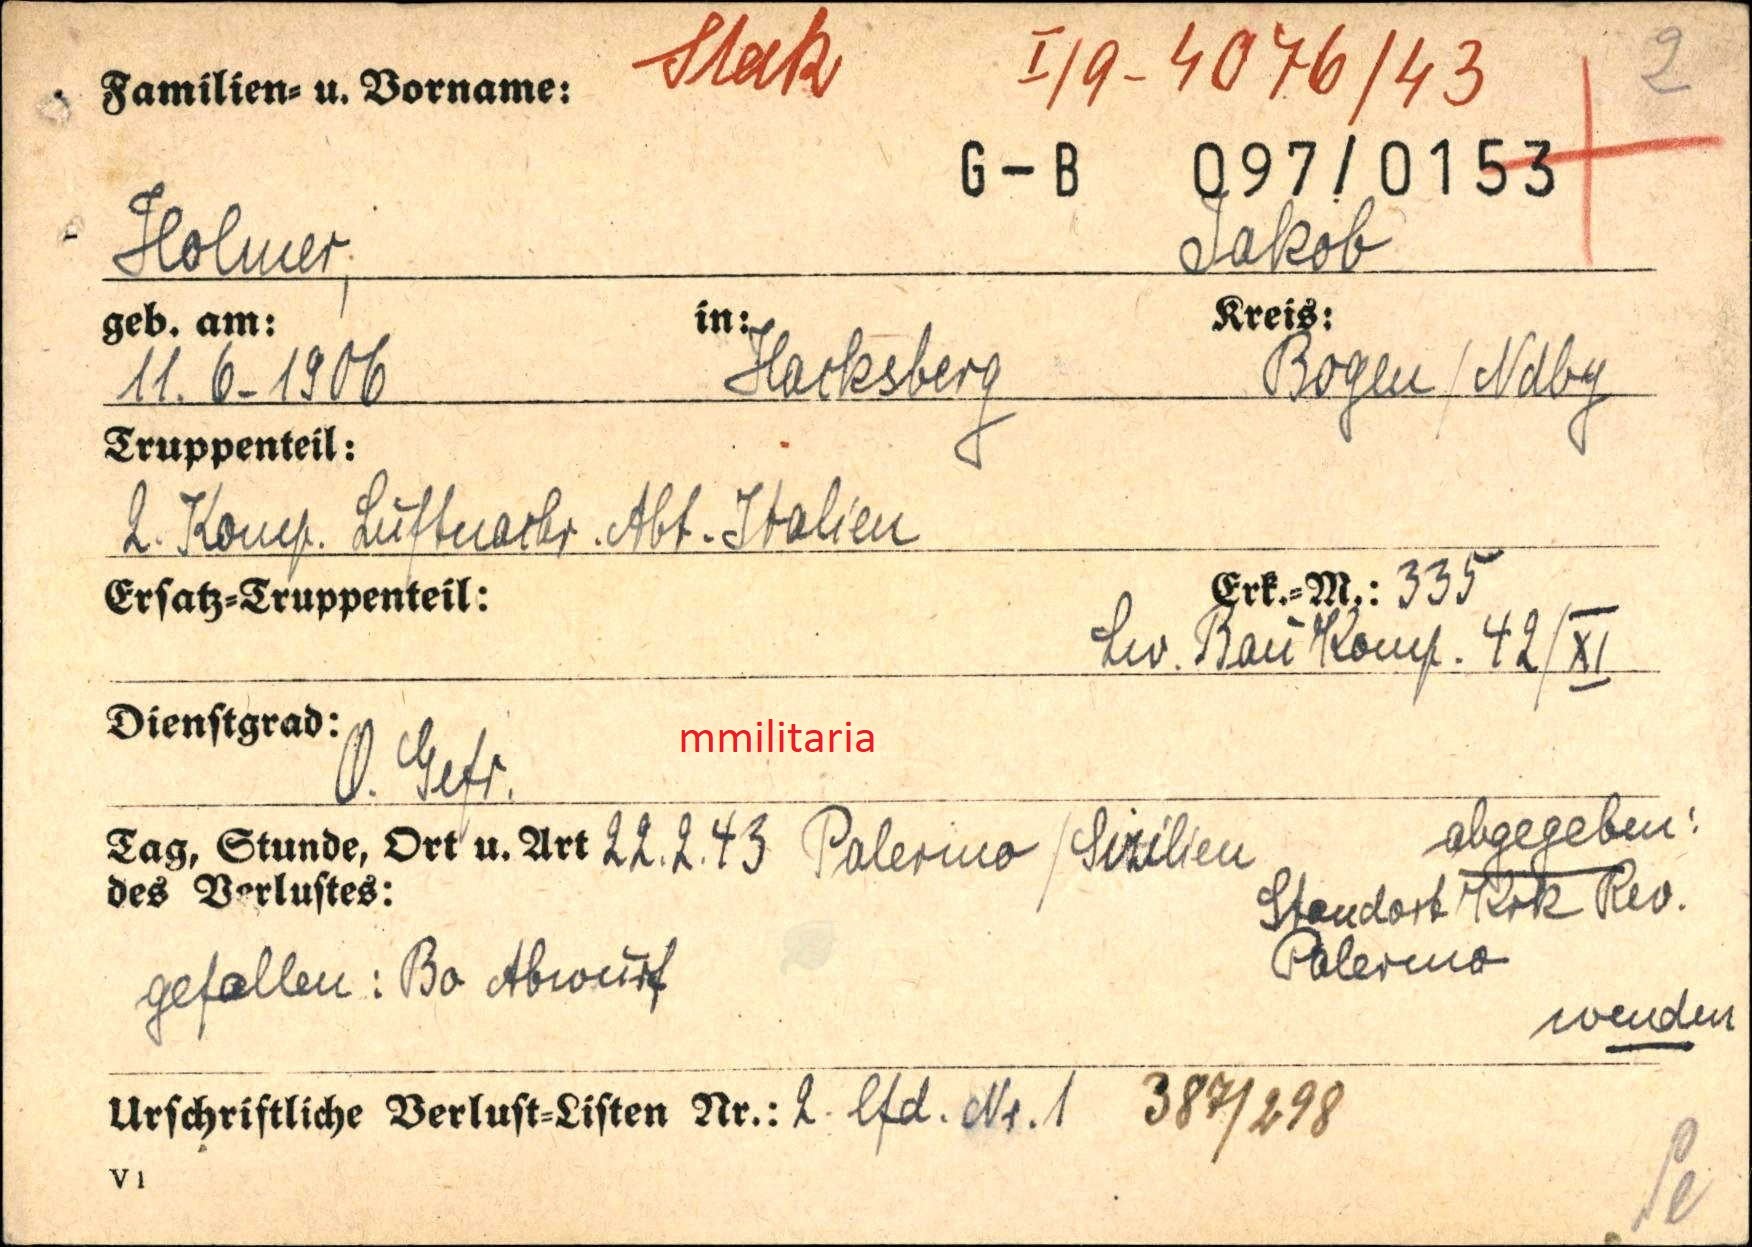 Stak I/9-4076/43 2
Familien- u. Vorname:
G-B 097/0153
Holmer, Jakob
geb. am: in: Kreis:
11.6-1906 Hacksberg Bogen/Ndby
Truppenteil:
2. Komp. Luftnachr. Abt. Italien
Ersatz-Truppenteil: Erk.-M.: 335
Lw. Bau Komp. 42/XI
Dienstgrad:
O. Gefr.
mmilitaria
Tag, Stunde, Ort u. Art 22.2.43 Palermo/Sizilien abgegeben:
des Verlustes: Standort Krk Rev.
Palermo
gefallen: Bo Abwurf
wenden
Urschriftliche Verlust-Listen Nr.: 2 lfd. Nr. 1 387/298
V 1